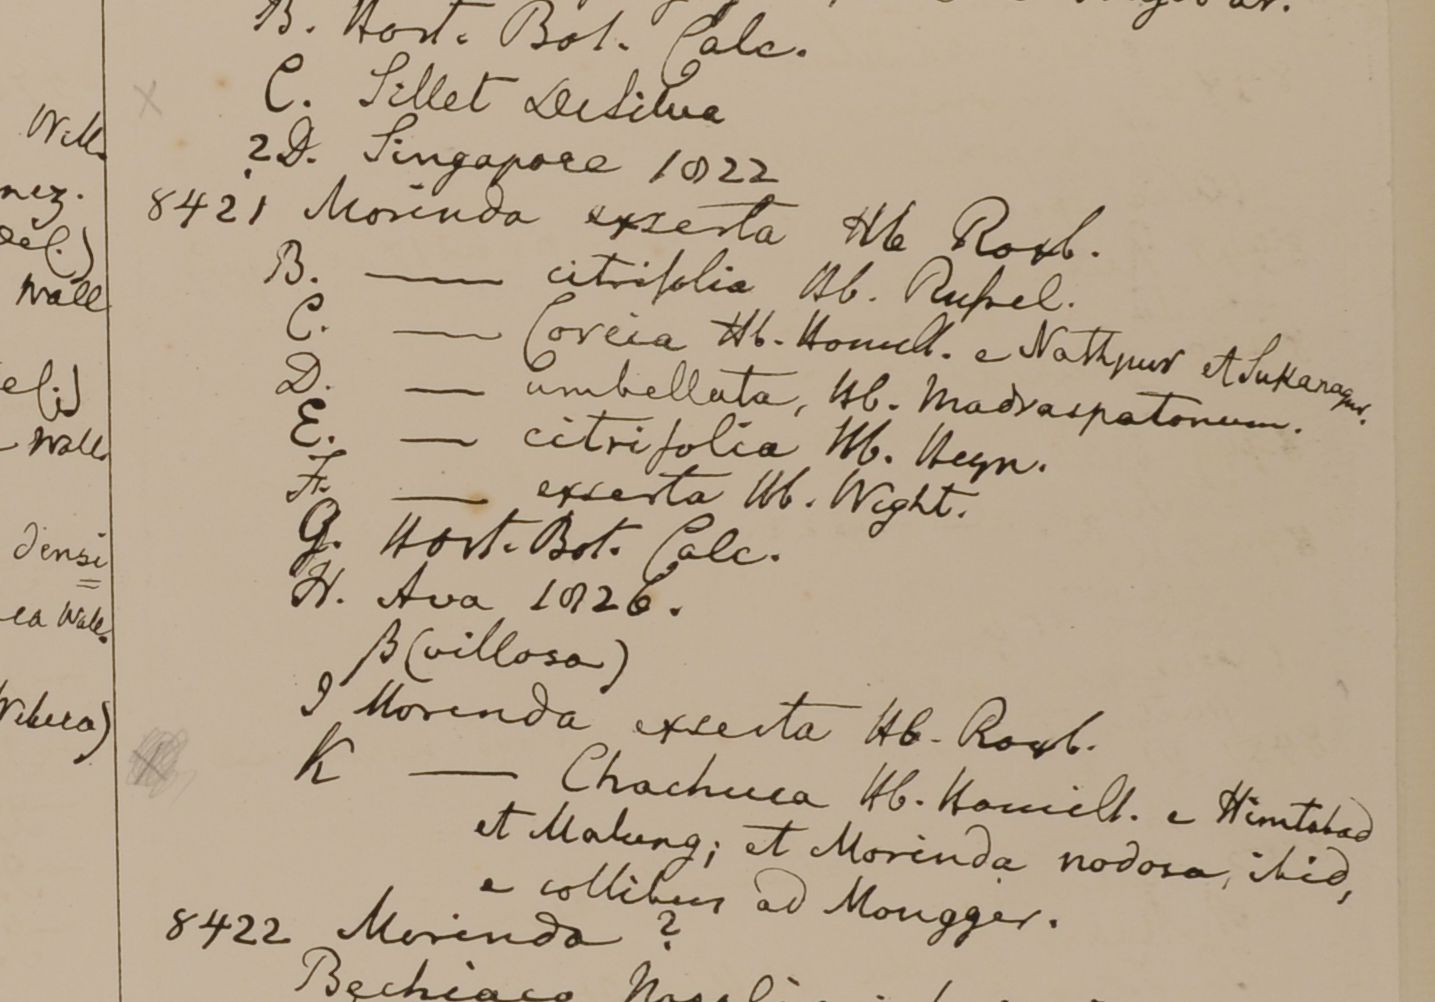 B. Hort. Bot. Calc.
C. Sillet DeSilva
?D. Singapore 1822
8421 Morinda exserta Hb Roxb.
B. — citrifolia Hb. Russel.
C. — Coreia Hb. Hamilt. e Nathpur et Sukanagur.
D. — umbellata, Hb. Madraspatonum.
E. — citrifolia Hb. Heyn.
F. — exserta Hb. Wight.
G. Hort. Bot. Calc.
H. Ava 1826.
β (villosa)
I Morinda exserta Hb. Roxb.
K — Chachuca Hb. Hamilt. e Himtabad
et Malung; et Morinda nodosa, ibid,
e collibus ad Mougger.
8422 Morinda ?
Wall.
nez.
Wall
Wall.
densi
ea Wall.